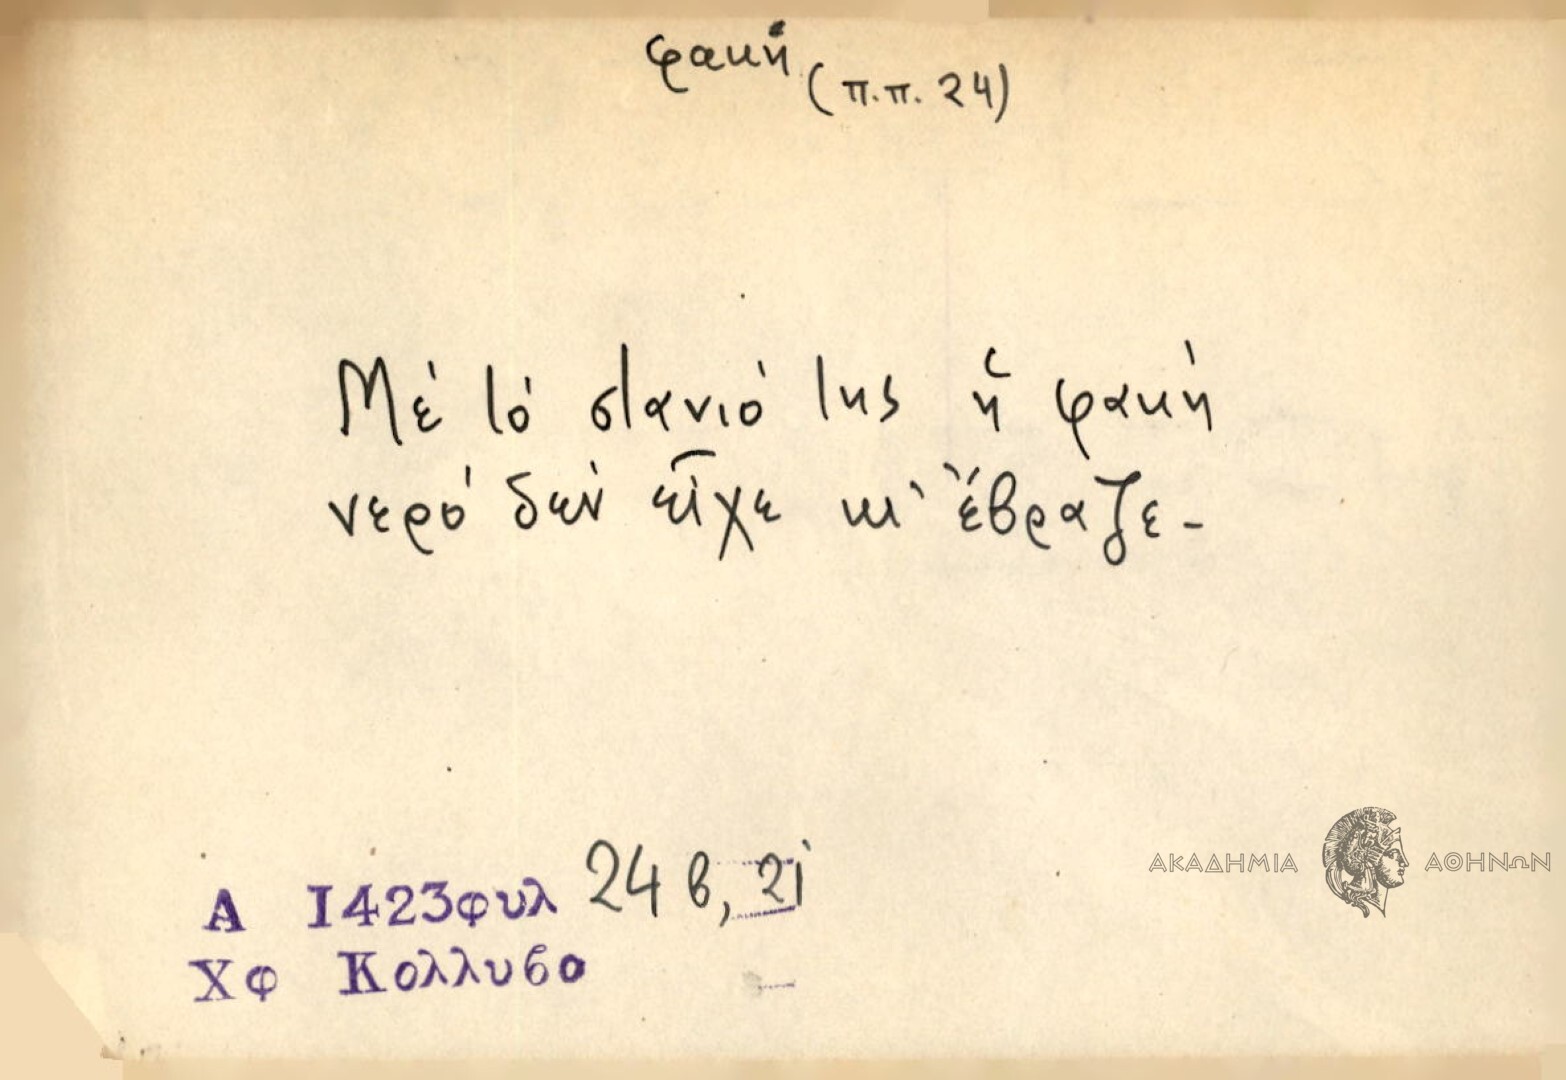 φακή (π.π. 24)
Μὲ τὸ στανιό της ἡ φακή
νερό δὲν εἶχε κι' ἔβραζε -
Α 1423φυλ 24 β, 21
Χφ Κολλυβα
ΑΚΑΔΗΜΙΑ ΑΘΗΝΩΝ